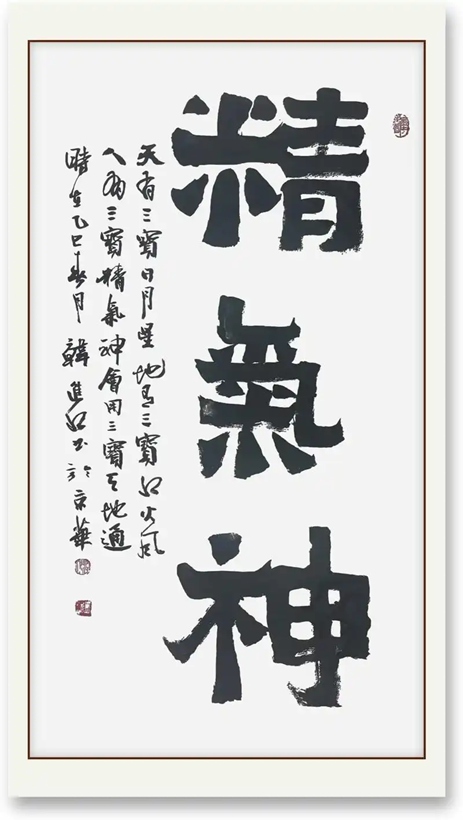 精氣神
天有三寶日月星地有三寶水火風
人有三寶精氣神會用三寶天地通
時在乙巳春月韓進水书於京華